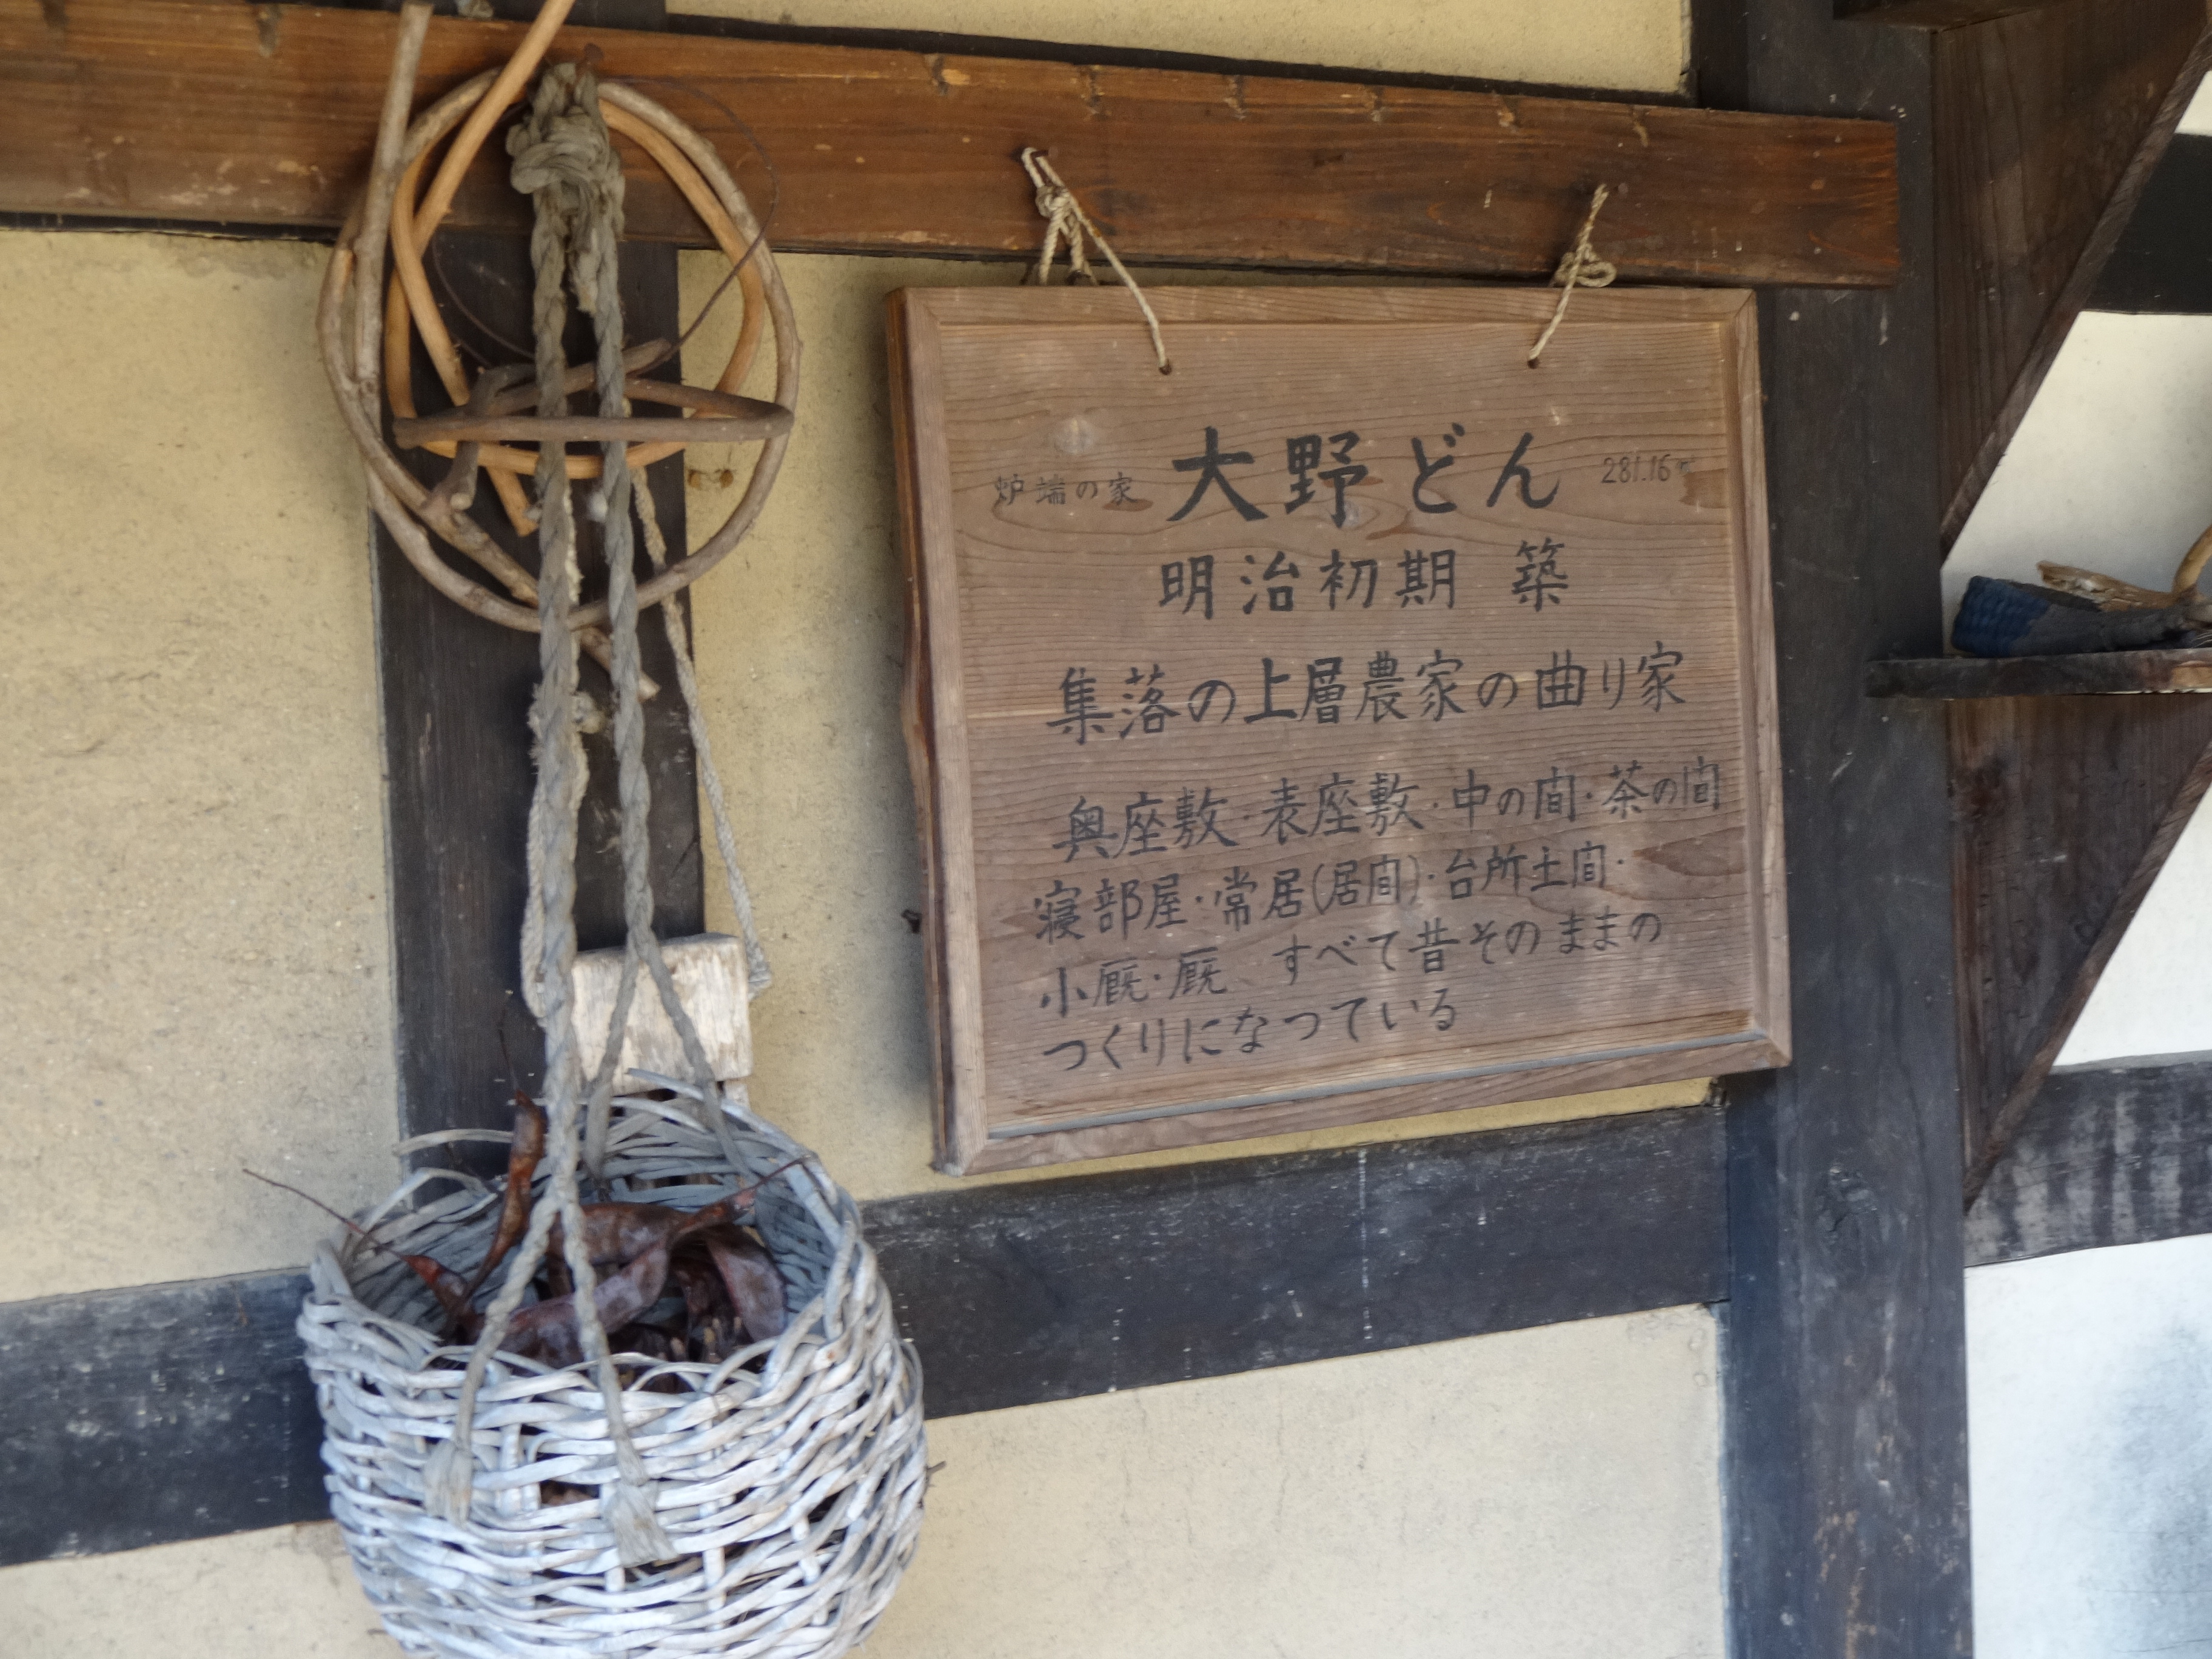 炉端の家 大野どん 281.16㎡
明治初期 築
集落の上層農家の曲り家
奥座敷・表座敷・中の間・茶の間
寝部屋・常居(居間)・台所土間・
小厩・厩、すべて昔そのままの
つくりになつている